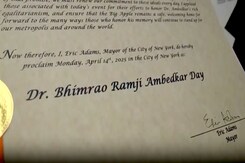 those associated with today's event for their efforts to honor Dr. Ambedkar's
egalitarianism, and ensure that the Big Apple remains a safe, welcoming home
forward to the many ways those who honor his memory will continue to
metropolis and around the world.
Now therefore, I, Eric Adams, Mayor of the City of New York, do hereby
proclaim Monday, April 14th, 2025 in the City of New York as
Dr. Bhimrao Ramji Ambedkar Day
Eric Adams
Mayor